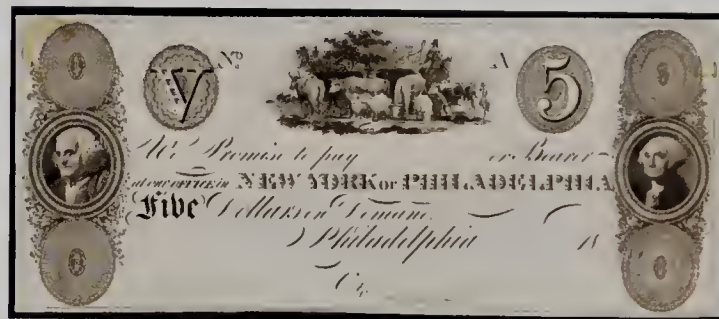 V No A 5
We Promise to pay or Bearer
at our OFFICE in NEW YORK or PHILADELPHIA
Five Dollars on Demand.
Philadelphia 18
Co.